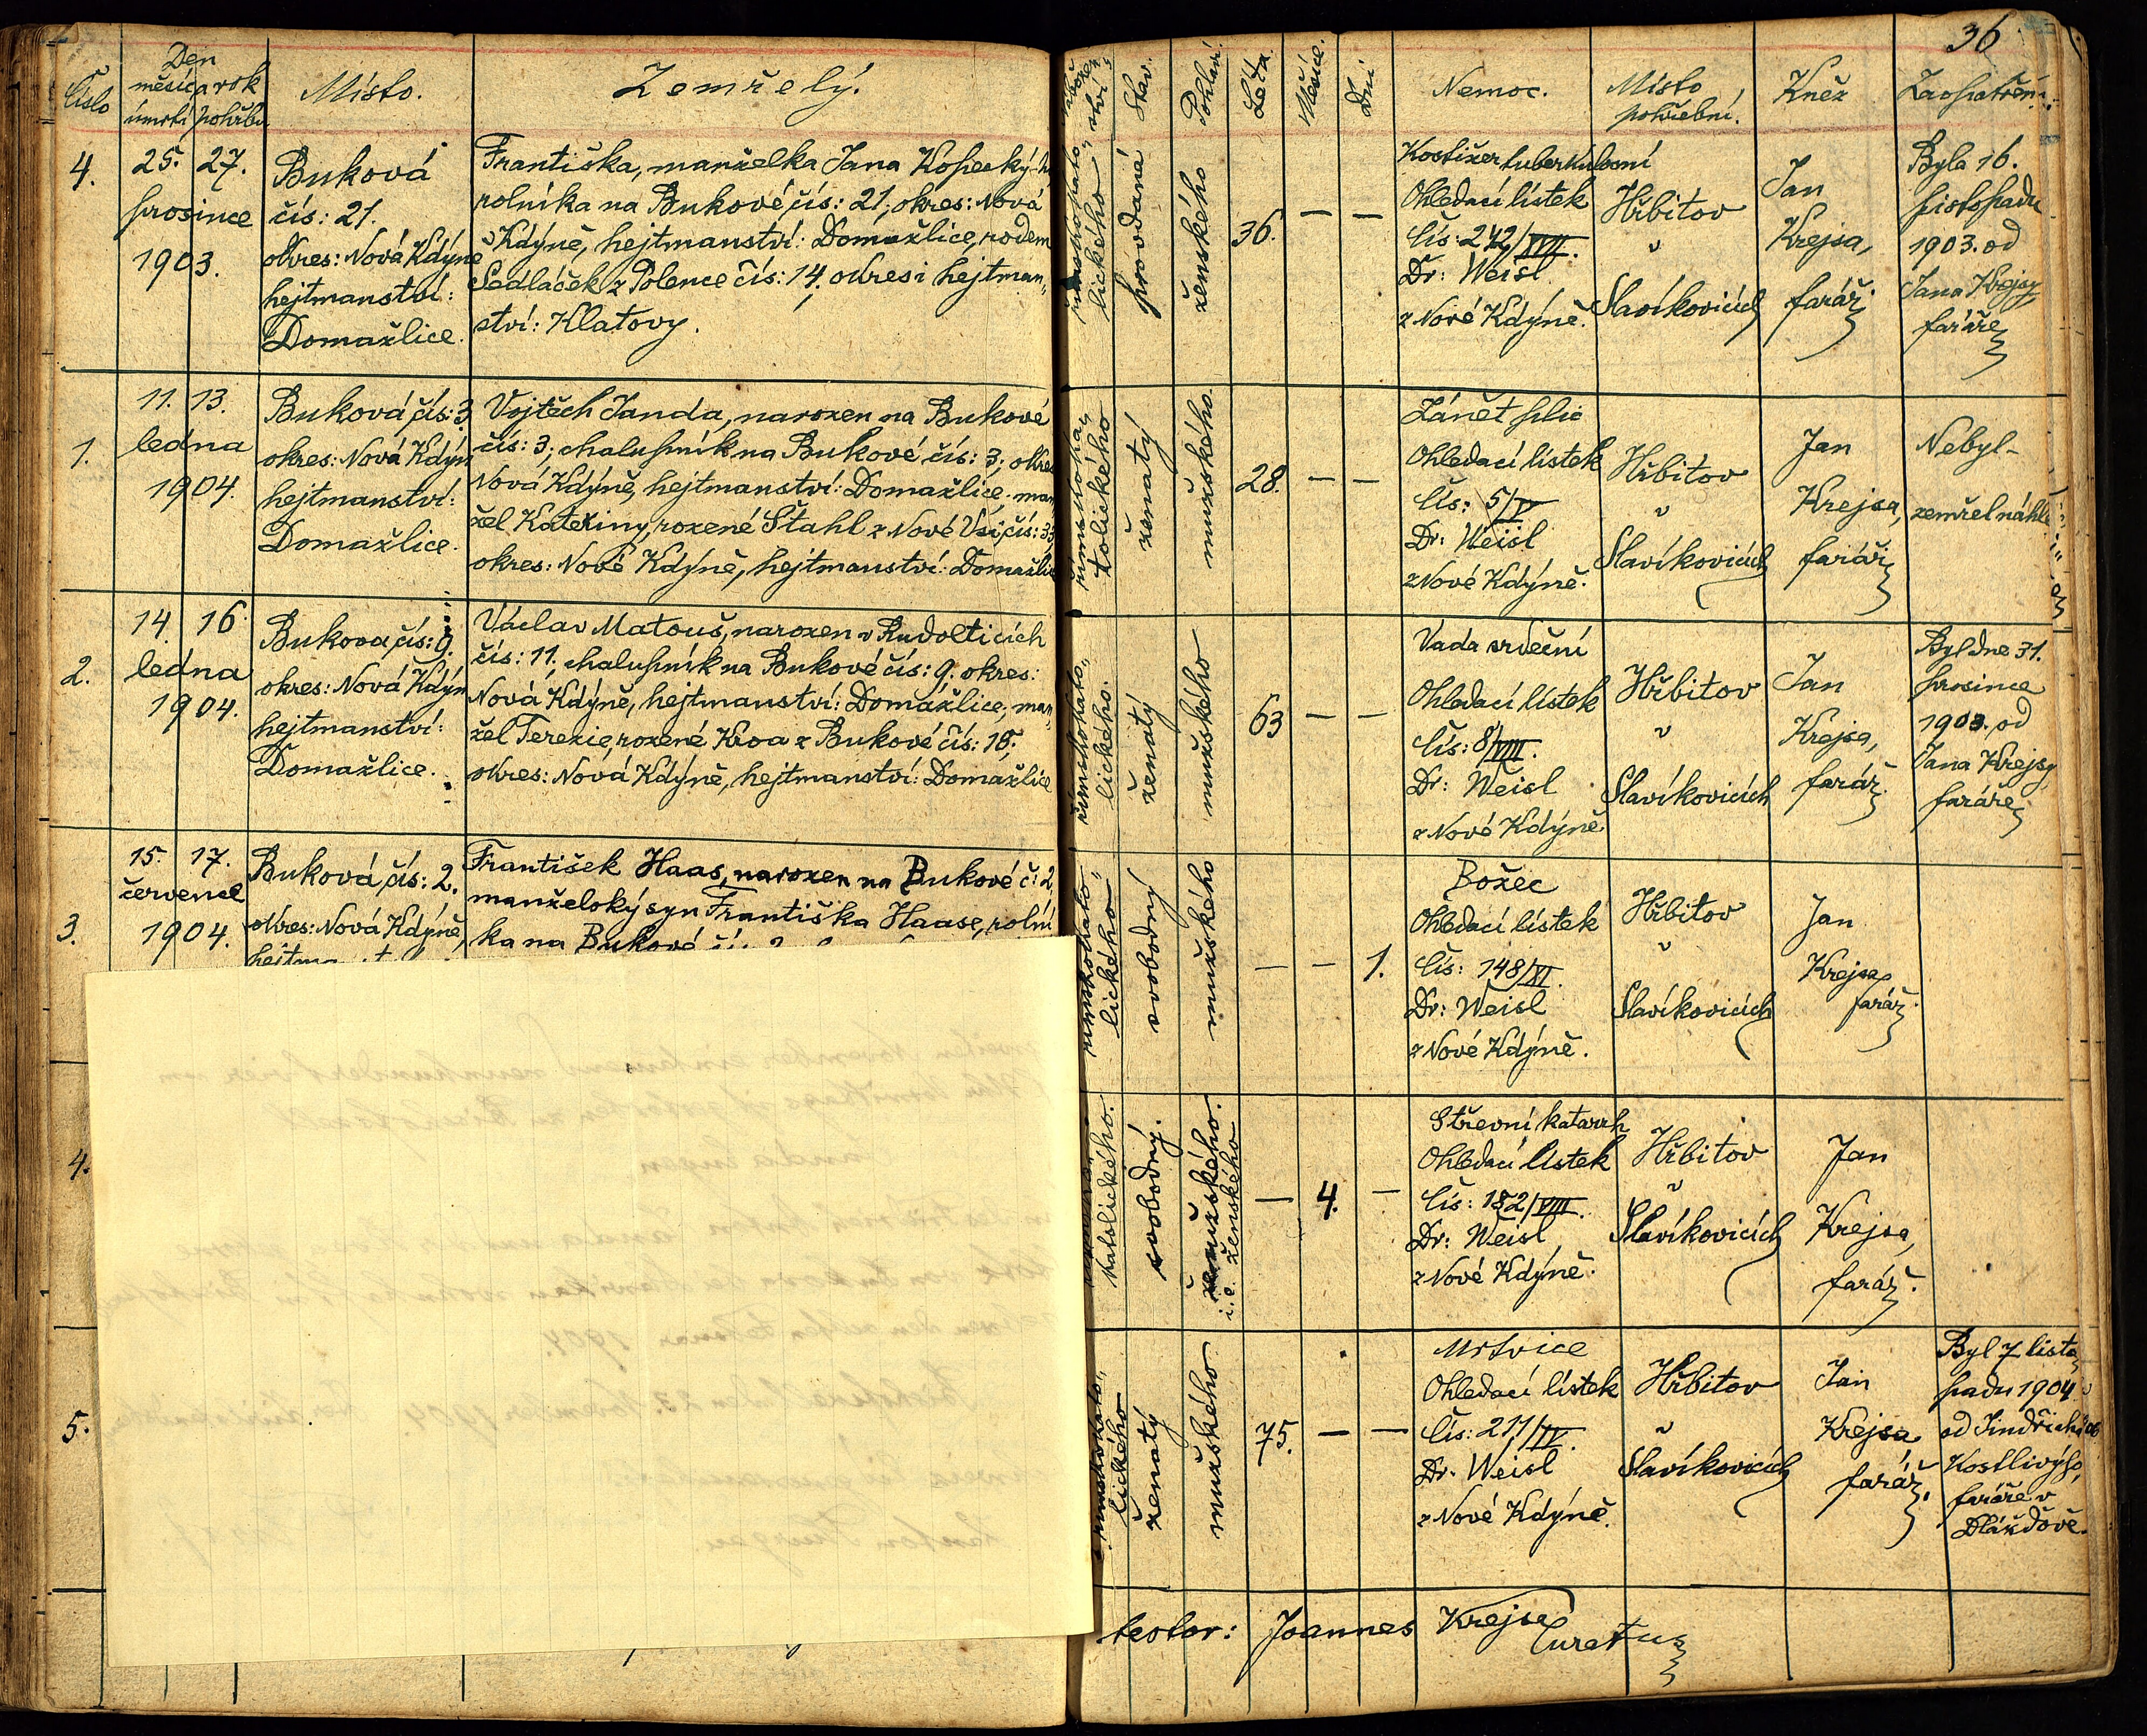 36
Číslo
Den
měsíc a rok
úmrtí pohřbu
Místo.
Zemřelý.
Stav.
Pohlaví.
Léta.
Měsíce.
Dní
Nemoc.
Místo
pohřební.
Kněz
Zaopatření.
4.
25. 27.
prosince
1903.
Buková
čís: 21.
okres: Nová Kdýně
hejtmanství:
Domažlice.
Františka, manželka Jana
rolníka na Bukové, čís: 21, okres: Nová
Kdýně, hejtmanství: Domažlice, rodem
Sedláček z Polence čís: 14. okres i hejtman„
ství: Klatovy.
lického
provdaná
ženského
36. — —
Ohledací lístek
čís: 242/XVII.
Dr: Weisl
z Nové Kdýně.
Hřbitov
v
Slavíkovicích
Jan
Krejsa,
farář.
Byla 16.
listopadu
1903. od
Jana Krejsy,
faráře
1.
11. 13.
ledna
1904.
Buková čís: 3.
okres: Nová Kdýn
hejtmanství:
Domažlice.
Vojtěch Janda, narozen na Bukové
čís: 3; chalupník na Bukové čís: 3; okres
Nová Kdýně, hejtmanství: Domažlice, man
žel Kateřiny, rozené Štahl z Nové Vsi, čís: 33
okres: Nové Kdýně, hejtmanství: Domažlice
římskoka„
tolického
ženatý
mužského
28. — —
Zánět plic
Ohledací lístek
čís: 5/V
Dr: Weisl
z Nové Kdýně.
Hřbitov
v
Slavíkovicích
Jan
Krejsa,
farář
Nebyl-
zemřel náhle
2.
14. 16.
ledna
1904.
Buková čís: 9.
okres: Nová Kdýn
hejtmanství:
Domažlice.
Václav Matouš, narozen v Rudolticích
čís: 11; chalupník na Bukové čís: 9. okres:
Nová Kdýně, hejtmanství: Domažlice, man„
žel Terezie, rozené
z Bukové čís: 15;
okres: Nová Kdýně, hejtmanství: Domažlice
římskokato„
lického.
ženatý
mužského
63 — —
Vada srdeční
Ohledací lístek
čís: 8/VIII.
Dr: Weisl
z Nové Kdýně
Hřbitov
v
Slavíkovicích
Jan
Krejsa,
farář.
Byl dne 31.
prosince
1903. od
Jana Krejsy
faráře
3.
15. 17.
července
1904.
Buková, čís: 2.
okres: Nová Kdýně,
František Haas, narozen na Bukové č: 2.
manželský syn Františka Haase, rolní
ka na Bukové
římskokato„
lického
svobodný
mužského
— — 1.
Božec
Ohledací lístek
čís: 148/XI.
Dr: Weisl
z Nové Kdýně.
Hřbitov
v
Slavíkovicích
Jan
Krejsa,
farář.
4.
katolického.
svobodný.
mužského.
i. e. ženského
— 4. —
Střevní katarrh
Ohledací lístek
čís: 182/VIII.
Dr: Weisl,
z Nové Kdýně.
Hřbitov
v
Slavíkovicích
Jan
Krejsa,
farář.
5.
římskokato„
lického
ženatý
mužského
75. — —
Mrtvice
Ohledací lístek
čís: 211/IV.
Dr. Weisl
z Nové Kdýně.
Hřbitov
v
Slavíkovicích
Jan
Krejsa
farář.
Byl 7 listo„
padu 1904
od Jindřicha
Kostlivýho,
faráře v
Dlážďově.
Joannes Krejsa
Curatus